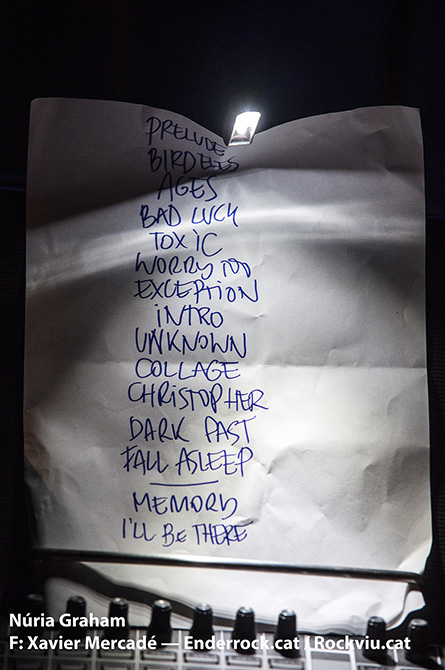 PRELUDE
BIRD EYES
AGES
BAD LUCK
TOXIC
WORRY TOO
EXCEPTION
INTRO
UNKNOWN
COLLAGE
CHRISTOPHER
DARK PAST
FALL ASLEEP
MEMORY
I'LL BE THERE
Núria Graham
F: Xavier Mercadé — Enderrock.cat / Rockviu.cat